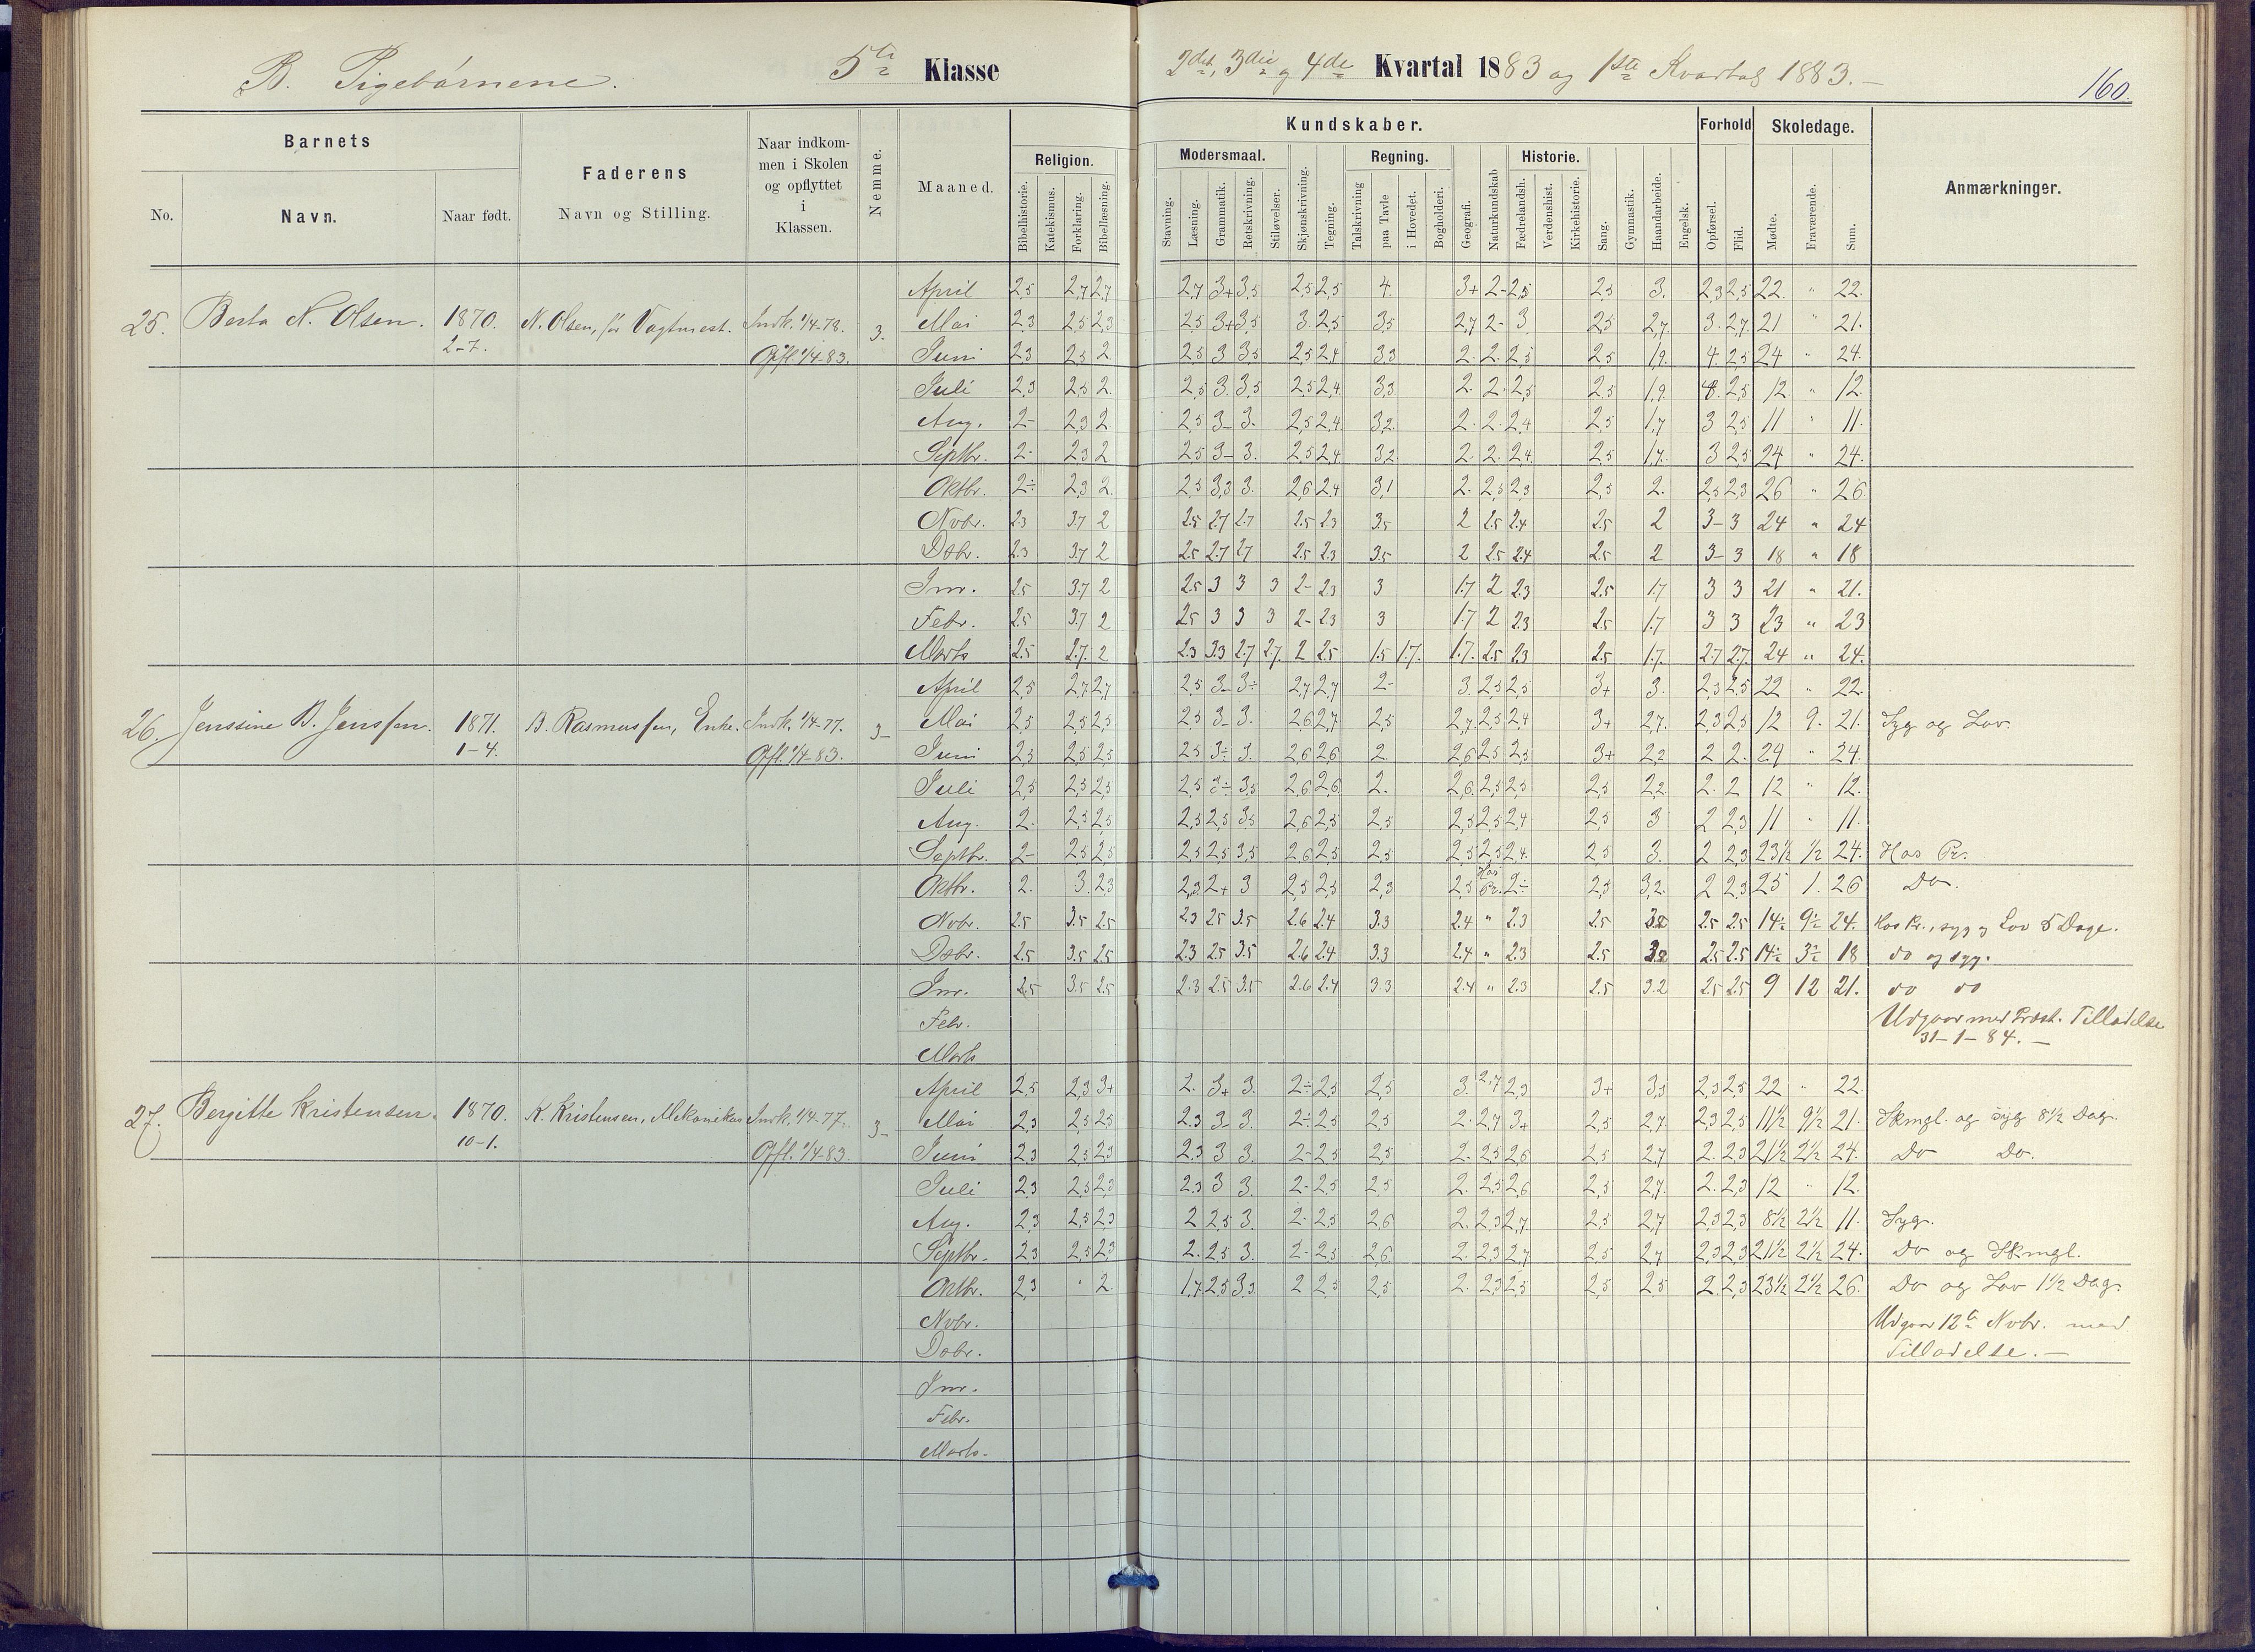 B. Pigebørnene. 5te Klasse 2det, 3die og 4de Kvartal 1883 og 1ste Kvartal 1883.
160.
Barnets
No.
Navn.
Naar født.
Faderens
Navn og Stilling.
Naar indkom-
men i Skolen
og opflyttet
i
Klassen.
Nemme.
Maaned.
Kundskaber.
Religion.
Bibelhistorie.
Katekismus.
Forklaring.
Bibellæsning.
Modersmaal.
Stavning.
Læsning.
Grammatik.
Retskrivning.
Stiløvelser.
Skjønskrivning.
Tegning.
Regning.
Talskrivning
paa Tavle
i Hovedet.
Bogholderi.
Geografi.
Naturkundskab
Historie.
Fædrelandsh.
Verdenshist.
Kirkehistorie.
Sang.
Gymnastik.
Haandarbeide.
Engelsk.
Forhold
Opførsel.
Flid.
Skoledage.
Mødte.
Fraværende.
Sum.
Anmærkninger.
25. Berta N. Olsen. 1870. 2-7. N. Olsen, før Vagtmest. Indk. 1/4-78. Opfl. 1/4-83. 3.
April 2,5 2,7 2,7 2,7 3+ 3,5 2,5 2,5 4. 3+ 2- 2,5 2,5 3. 2,3 2,5 22. " 22.
Mai 2,3 2,5 2,3 2,5 3+ 3,5 3. 2,5 3,5 2,7 2- 3 2,5 2,7 3. 2,7 21 " 21.
Juni 2,3 2,5 2 2,5 3 3,5 2,5 2,4 3,3 2. 2. 2,5 2,5 1,9 4. 2,5 24 " 24.
Juli 2,3 2,5 2. 2,5 3. 3,5 2,5 2,4 3,3 2. 2. 2,5 2,5 1,9. 2,5 12 " 12
Aug. 2- 2,3 2 2,5 3- 3. 2,5 2,4 3,2. 2. 2. 2,4 2,5 1,7 3 2,5 11 " 11.
Septbr. 2- 2,3 2 2,5 3- 3. 2,5 2,4 3,2 2. 2. 2,4 2,5 1,7. 3 2,5 24 " 24.
Oktbr. 2÷ 2,3 2. 2,5 3,3 3. 2,6 2,4 3,1 2. 2,5 2,3 2,5 2. 2,5 2,3 26 " 26
Novbr. 2.3 3.7 2 2.5 2.7 2.7 2.5 2.3 3.5 2 2.5 2.4 2.5 2 3- 3 24 " 24
Dsbr. 2.3 3.7 2 2.5 2.7 2.7 2.5 2.3 3.5 2 2.5 2.4 2.5 2 3- 3 18 " 18
Jnr. 2.5 3.7 2 2.5 3 3 3 2- 2.3 3 1.7 2 2.3 2.5 1.7 3 3 21 " 21.
Febr. 2.5 3.7 2 2.5 3 3 3 2- 2.3 3 1.7 2 2.3 2.5 1.7 3 3 23 " 23
Marts 2.5 2.7. 2 2.3 3.3 2.7 2.7. 2 2.5 1.5 1.7. 1.7. 2.5 2.3 2.5 1.7. 2.7 2.7. 24 " 24.
26. Jenssine B. Jenssen. 1871. 1-4. B. Rasmussen, Enke. Indk. 1/4-77. Opfl. 1/4-83. 3-
April 2,5 2,7 2,7 2,5 3- 3÷ 2,7 2,7 2- 3. 2,5 2,5 3+ 3. 2,3 2,5 22 " 22.
Mai 2,5 2,5 2,5 2,5 3- 3. 2,6 2,7 2,5 2,7. 2,5 2,4 3+ 2,7. 2,3 2,5 12 9. 21. Syg og Lov.
Juni 2,3 2,5 2,5 2,5 3÷ 3. 2,6 2,6 2. 2,6 2,5 2,5 3+ 2,2 2 2. 24 " 24.
Juli 2,5 2,5 2,5 2,5 3÷ 3,5 2,6 2,6 2. 2,6. 2,5 2,5 2,5 2,2. 2. 2 12 " 12.
Aug. 2. 2,5 2,5 2,5 2,5 3,5 2,6 2,5 2,5 2,5 2,5 2,4 2,5 3 2 2,3 11 " 11.
Septbr. 2- 2,5 2,5 2,5 2,5 3,5 2,6 2,5 2,5 2,5 2,5 2,4. 2,5 3. 2 2,3 23½ ½ 24. Hos Pr.
Oktbr. 2. 3. 2,3 2,3 2+ 3 2,5 2,5 2,3 2,5 Hos Pr. 2÷ 2,5 3,2. 2 2,3 25 1. 26 Do.
Novbr. 2.5 3.5 2.5 2.3 2.5 3.5 2.6 2.4 3.3 2.4 " 2.3 2.5 3.2 2.5 2.5 14½ 9½ 24. Hos Pr., syg og Lov 5 Dage.
Dsbr. 2.5 3.5 2.5 2.3 2.5 3.5 2.6 2.4 3.3 2.4 " 2.3 2.5 3.2 2.5 2.5 14½ 3½ 18 do og syg.
Jnr. 2.5 3.5 2.5 2.3 2.5 3.5 2.6 2.4 3.3 2.4 " 2.3 2.5 3.2 2.5 2.5 9 12 21. do do
Febr. Udgaar med Præst. Tilladelse
31-1-84.-
Marts
27. Bergitte Kristensen. 1870. 10-1. K. Kristensen, Mekanikus Indk. 1/4-77. Opfl. 1/4-83. 3-
April 2,5 2,3 3+ 2. 3+ 3. 2÷ 2,5 2,5 3. 2,7 2,3 3+ 3,3 2,3 2,5 22 " 22.
Mai 2,3 2,5 2,5 2.3 3- 3. 2÷ 2,5 2,5 2. 2,7 3+ 2,5 2,7 2,3 2,5 11½ 9½ 21. Skmgl. og syg 8½ Dag.
Juni 2,3 2,5 2,3 2.3 3 3. 2- 2,5 2,5 2. 2,5 2,6 2,5 2,7 2. 2,3 21½ 2½ 24. Do Do.
Juli 2,3 2,5 2,3 2.3 3 3. 2- 2,5 2,5 2. 2,5 2,6 2,5 2,7. 2. 2,3 12 " 12.
Aug. 2,3 2,5 2,3 2 2,5 3. 2- 2,5 2,6 2. 2,3 2,7 2,5 2,7 2,3 2,3 8½ 2½ 11. Syg.
Septbr. 2,3 2,5 2,3 2. 2,5 3. 2- 2,5 2,6 2. 2,3 2,7 2,5 2,7 2,3 2,3 21½ 2½ 24. Do og Skmgl.
Oktbr. 2,3 " 2. 1,7. 2,5 3,3. 2 2,5 2,5 2. 2,3 2,5 2,5 2,5 2. 2,3 23½ 2½ 26. Do og Lov 1½ Dag.
Novbr. Udgaar 12te Novbr. med
Dsbr. Tilladelse.-
Jnr.
Febr.
Marts.